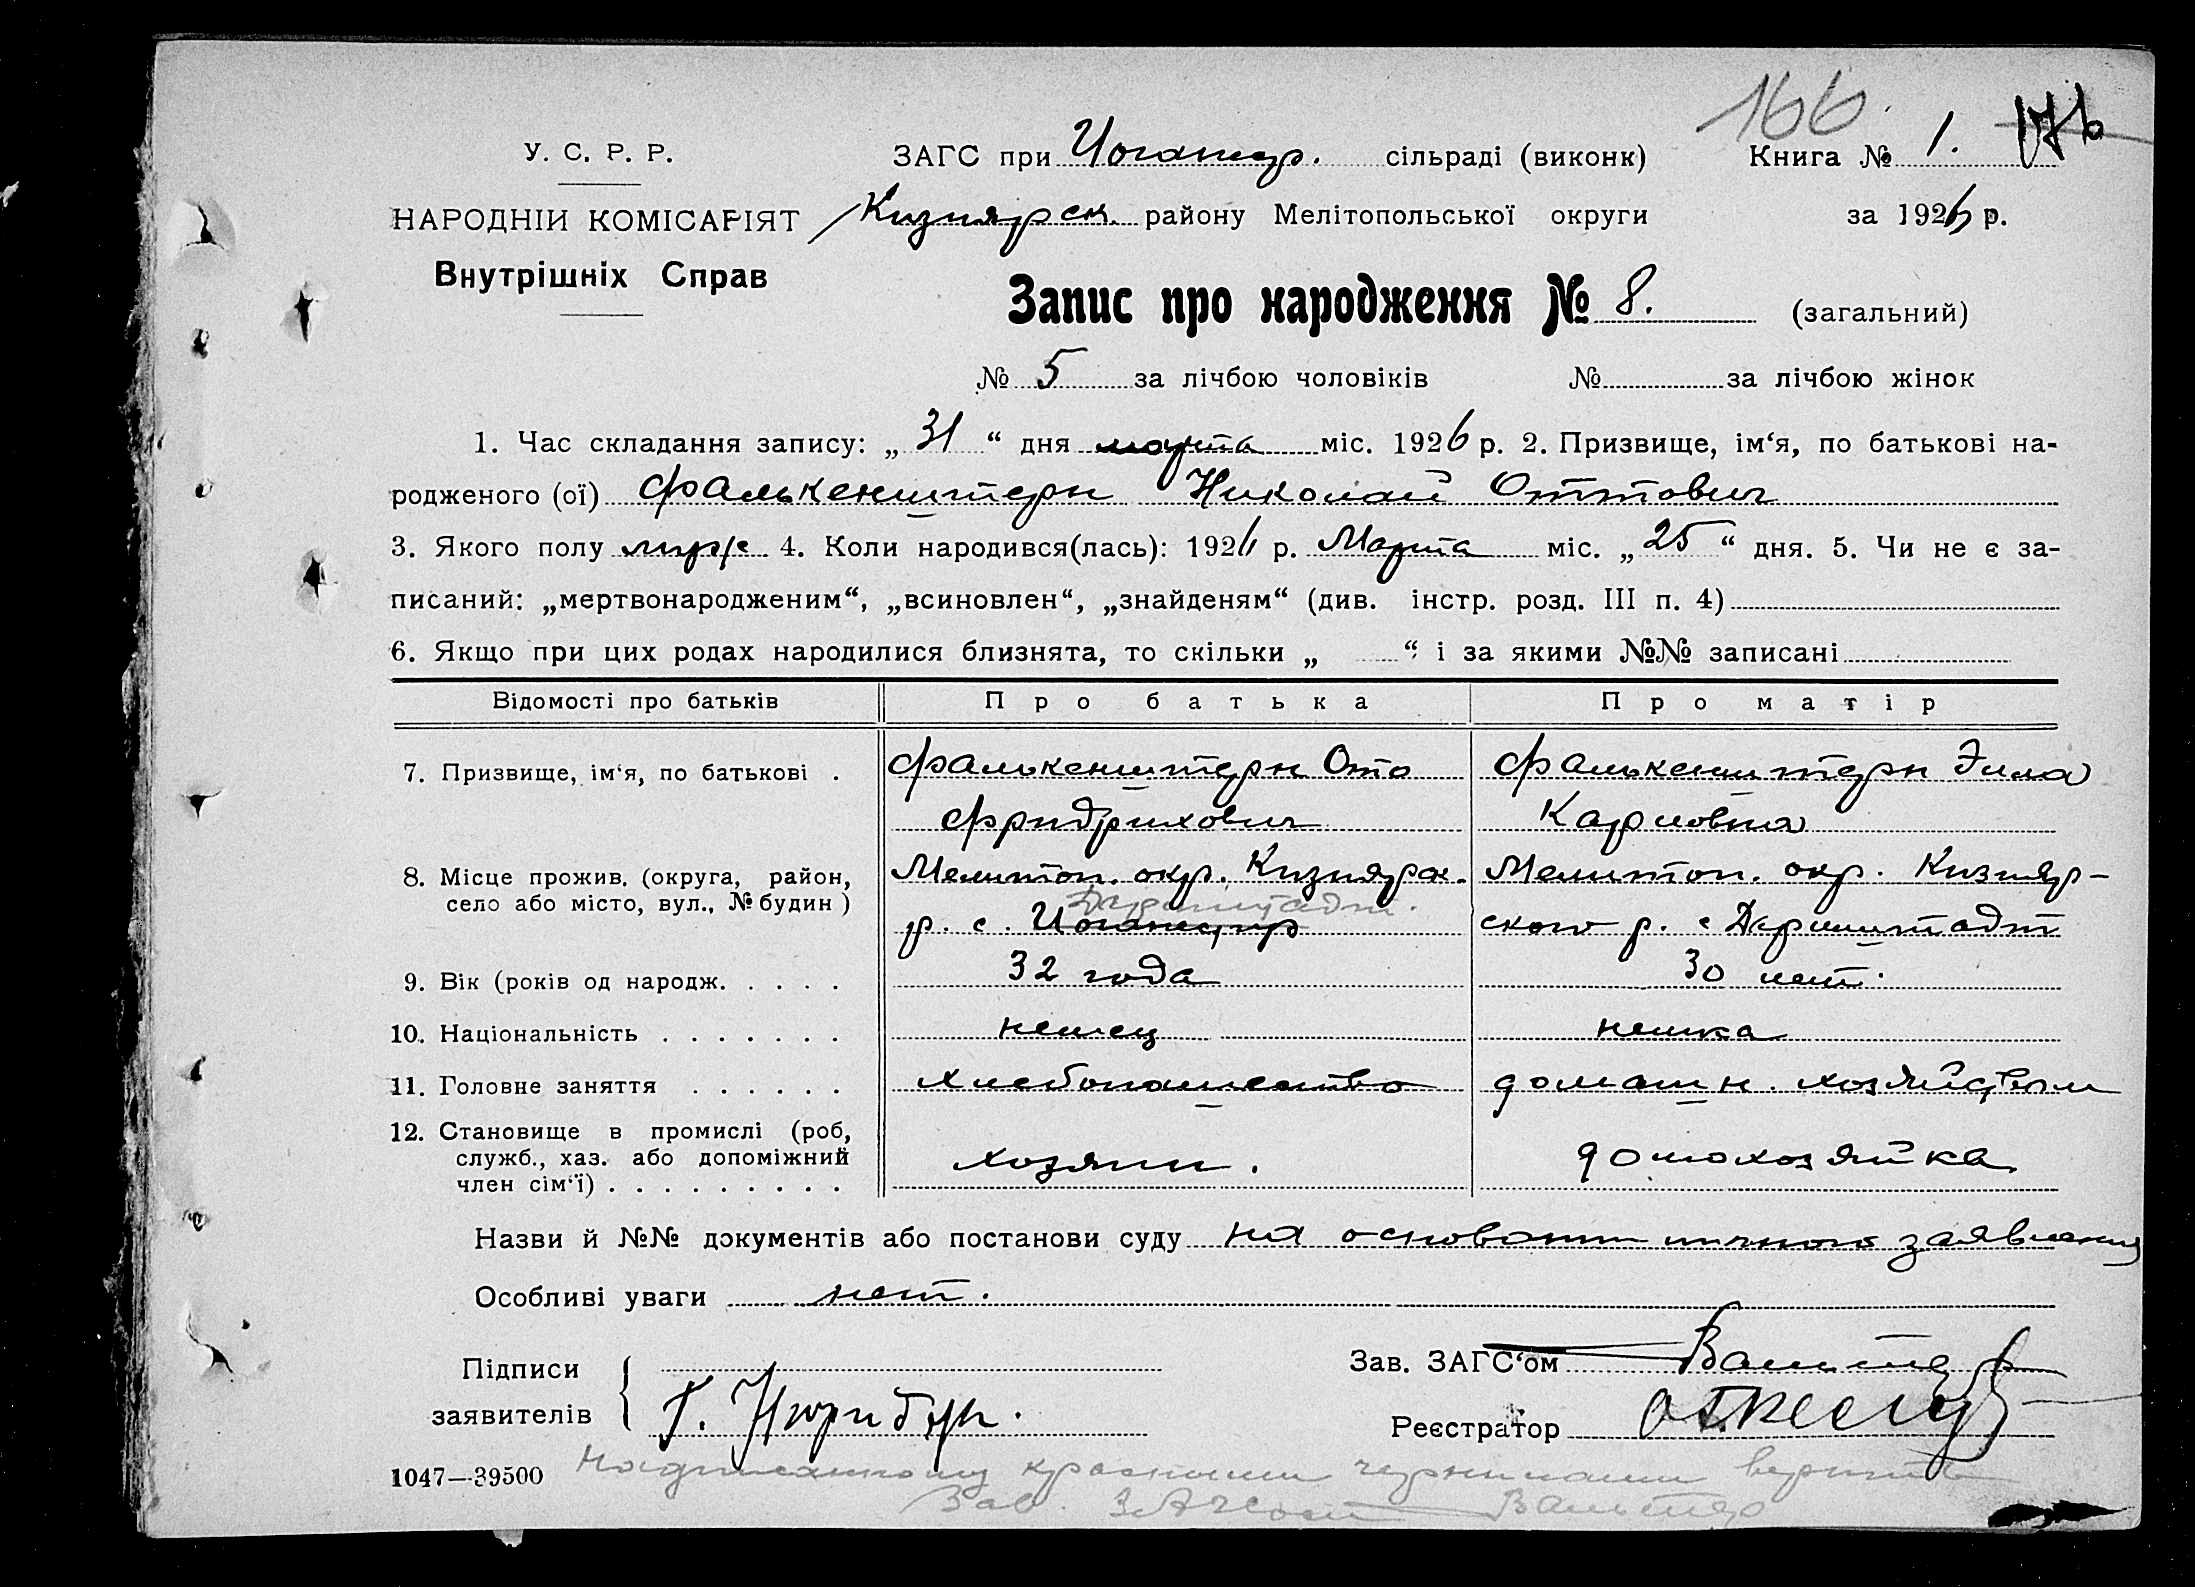 166.
У. С. Р. Р.
ЗАГС при Иоганеср. сільраді (виконк) Книга № 1. 176
НАРОДНІЙ КОМІСАРІЯТ Кизиярск. району Мелітопольської округи за 1926 р.
Внутрішніх Справ
Запис про народження № 8. (загальний)
№ 5 за лічбою чоловіків № за лічбою жінок
1. Час складання запису: „ 31 “ дня марта міс. 1926 р. 2. Призвище, ім‘я, по батькові на-
родженого (ої) Фалькенштерн Николай Оттович
3. Якого полу муж 4. Коли народився(лась): 1926 р. Марта міс. „ 25 “ дня. 5. Чи не є за-
писаний: „мертвонародженим“, „всиновлен“, „знайденям“ (див. інстр. розд. III п. 4)
6. Якщо при цих родах народилися близнята, то скільки „ “ і за якими №№ записані
Відомості про батьків Про батька Про матір
7. Призвище, ім‘я, по батькові . Фалькенштерн Ото Фалькенштерн Элла
Фридрихович Карловна
8. Місце прожив. (округа, район, Мелитоп. окр. Кизиярск. Мелитоп. окр. Кизияр-
Дармштадт.
село або місто, вул., № будин ) р. с. Иоганесру ского р. с Дармштадт
9. Вік (років од народж. . . . . 32 года 30 лет.
10. Національність . . . . . . . немец немка
11. Головне заняття . . . . . . хлебопашество домашн. хозяйством
12. Становище в промислі (роб,
служб., хаз. або допоміжний хозяин. домохозяйка
член сім‘ї) . . . . . . . . .
Назви й №№ документів або постанови суду на основании личного заявления
Особливі уваги нет.
Підписи Зав. ЗАГС‘ом Вальтер
заявителів Г. Нюрнбрн. Реєстратор
1047—39500 Надписанному красными чернилами верить
Зав. ЗАГСом Вальтер